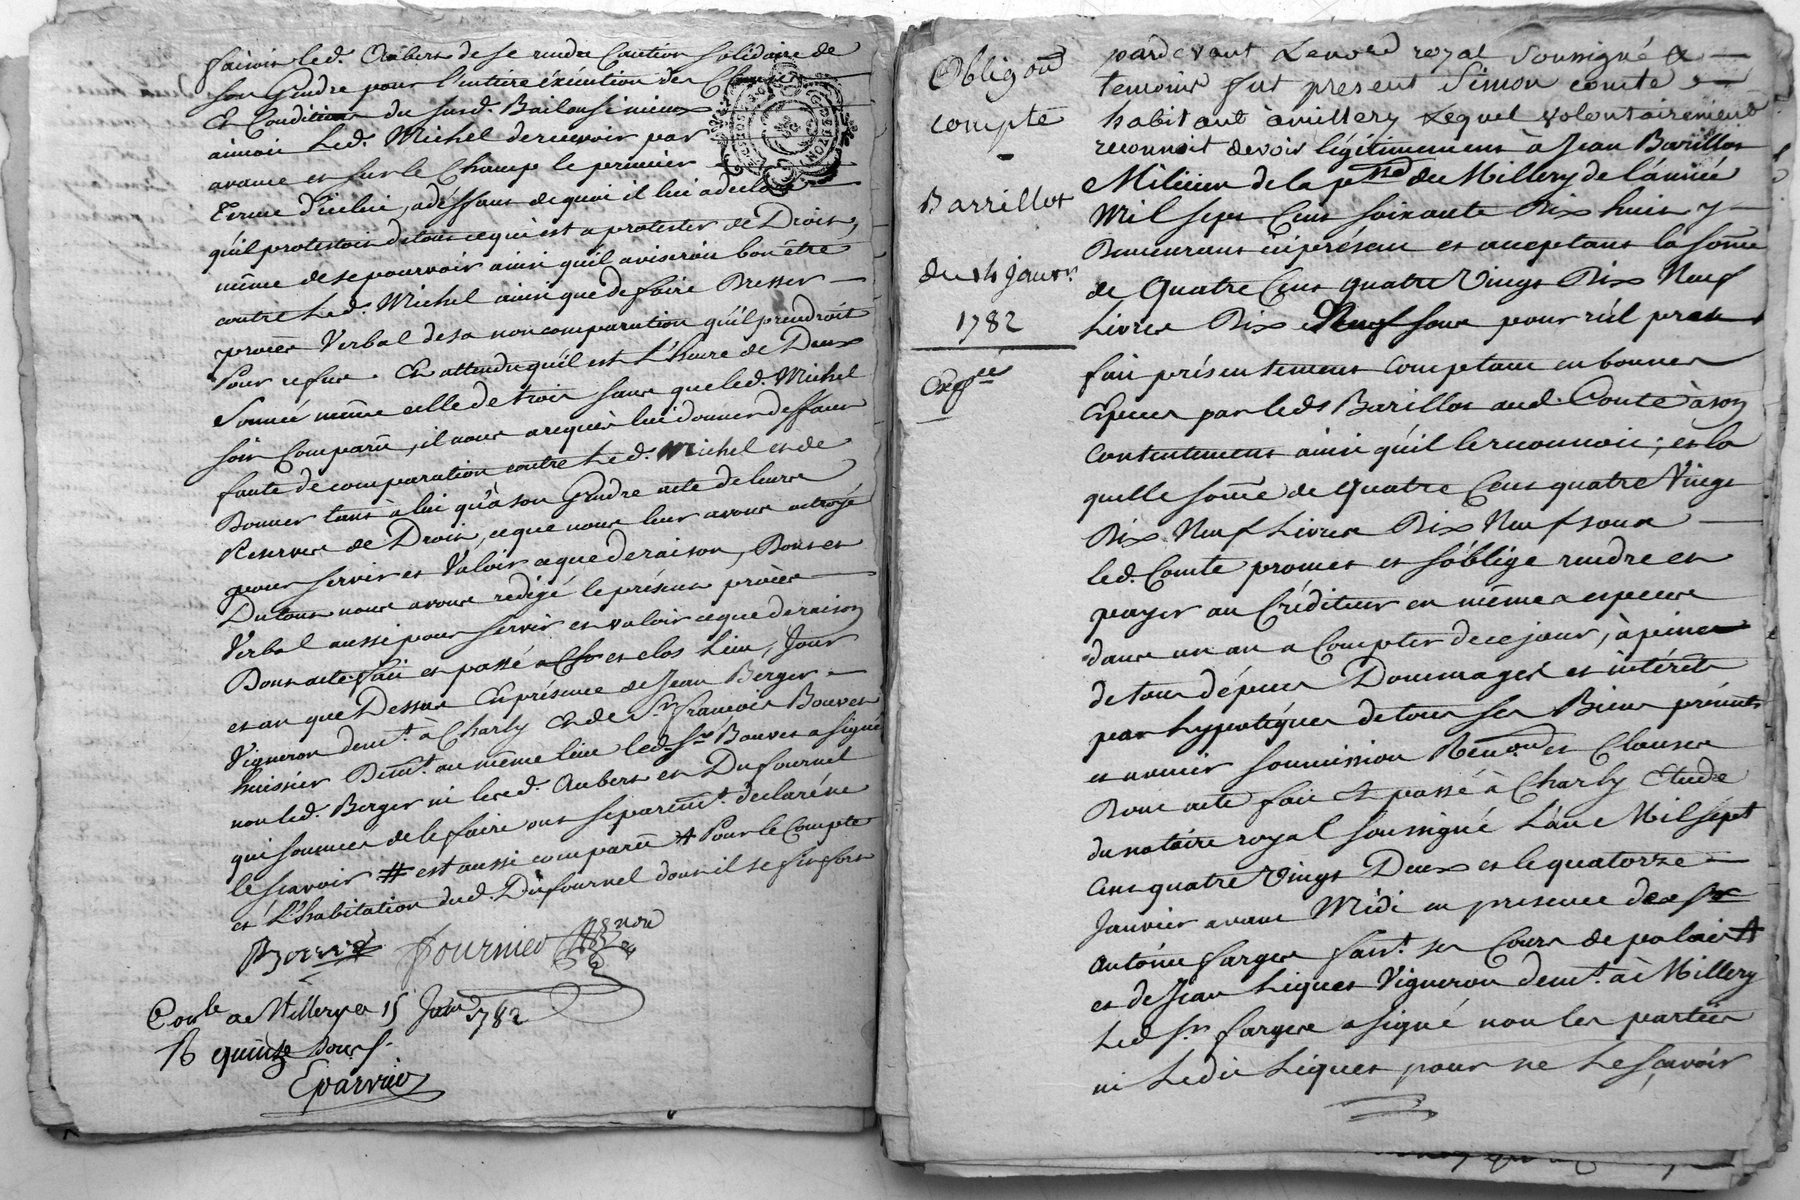 faisoit led. Aubert de se rendre Caution solidaire de
son Gendre pour l'entiere éxécution des Clauses
Et Conditions du susd. Bail ou si mieux
aimoit Led. Michel de recevoir par
avance et sur le Champ le premier
Terme d'icelui, a déffaut de quoi il lui a declaré
qu'il protestoit de tout ce qui est a protester de Droit,
même de se pourvoir ainsi qu'il aviseroit bon être
contre Led. Michel ainsi que de faire Dresser
procès Verbal de sa non comparution qu'il prendroit
Pour refus. Et attendu qu'il est L'heure de Deux
Sonnée même celle de trois sans que led. Michel
soit Comparû, il nous a requis lui donner deffaut
faute de comparution contre Led. Michel et de
Donner tant à lui qu'à son Gendre acte de leurs
Reserves de Droit, ce que nous leur avons octroyé
pour servir et Valoir ce que de raison, Dont et
Du tout nous avons redigé le présent procès
Verbal aussi pour servir et valoir ce que de raison
Dont acte fait et passé et clos Lieu, Jour
et an que Dessus En présence de Jean Berger
Vigneron demt. à Charly Et de Sr. françois Bouvet
huissier Demt. au même lieu led. Sr Bouvet a signé
non led. Berger ni lesd. Aubert et Dufournel
qui sommés de le faire ont séparemt. declaré ne
le sçavoir # est aussi comparû # Pour le Compte
et L'habitation dud. Dufournel dont il se fait fort
Bouvet fournier
Conlé a Millery le 15 Janv 1782
R quinze sous
Eparvier
Obligon
compte
Barrillot
du 14 Janvr.
1782
Expée
pardevant Le nore royal soussigné &
temoins fut present Simon comte
habitant à millery Lequel volontairement
reconnoit devoir légitimement à Jean Barillot
Milicien de la psse de Millery de l'année
Mil sept Cent soixante Dix huit y
Demeurant ici présent et acceptant la some
de Quatre Cent quatre Vingt Dix Neuf
Livres Dix Neuf sous pour rêel prest
fait présentement Comptant en bonnes
Especes par ledt Barillot aud. Comte à son
Contentement ainsi qu'il le reconnoit; et la
quelle some de Quatre Cent quatre Vingt
Dix Neuf Livres Dix Neuf sous
led. Comte promet et s'oblige rendre et
payer au Créditeur en mêmes especes
dans un an a Compter de ce jour, à peine
de tous dépens Dommages et intérets
par hypotéques de tous ses Biens présents
et avenir soumission Renon et Clauses
Dont acte fait Et passé à Charly Etude
du notaire royal soussigné L'an Mil sept
Cent quatre Vingt Deux et le quatorze
Janvier avant Midi en presence de Sr
Antoine farges fait. ses Cours de palais
et de Jean Liquet Vigneron demt. à Millery
Led Sr farges a signé non les parties
ni Ledit Liquet pour ne Le sçavoir